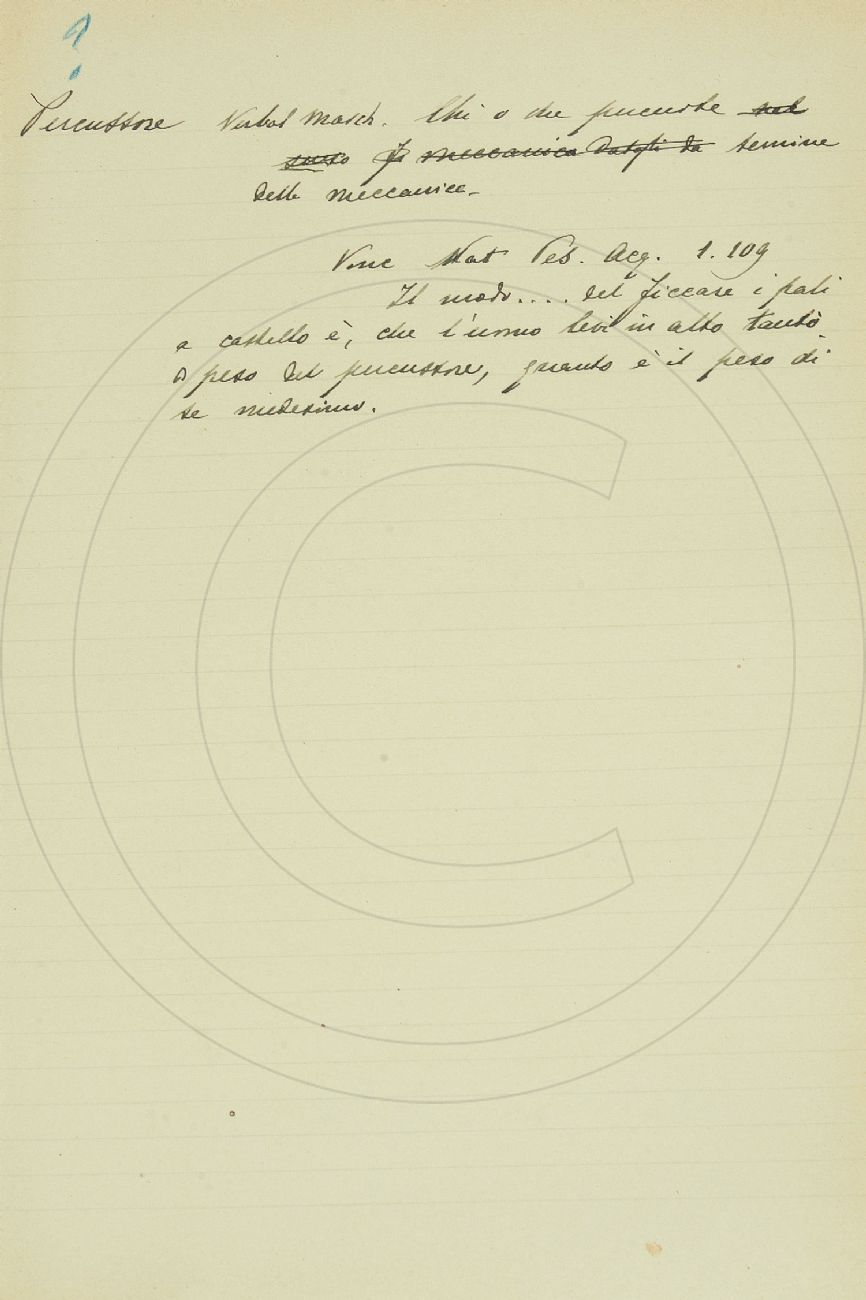 ?
Percussore Verbal Masch. Chi o che percuote nel
senso meccanico datogli da termine
delle meccanice.
Vinc Nat Pes. Acq. 1.109
Il modo.... del ficcare i pali
a castello è, che l'uomo levi in alto tanto
peso del percussore, quanto è il peso di
se medesimo.